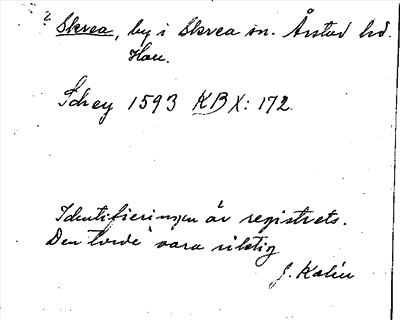 Skrea, by i Skrea sn. Årstad hd.
Hall.
Schey 1593 KB X: 172.
Identifieringen är registrets.
Den torde vara riktig
J. Kalén